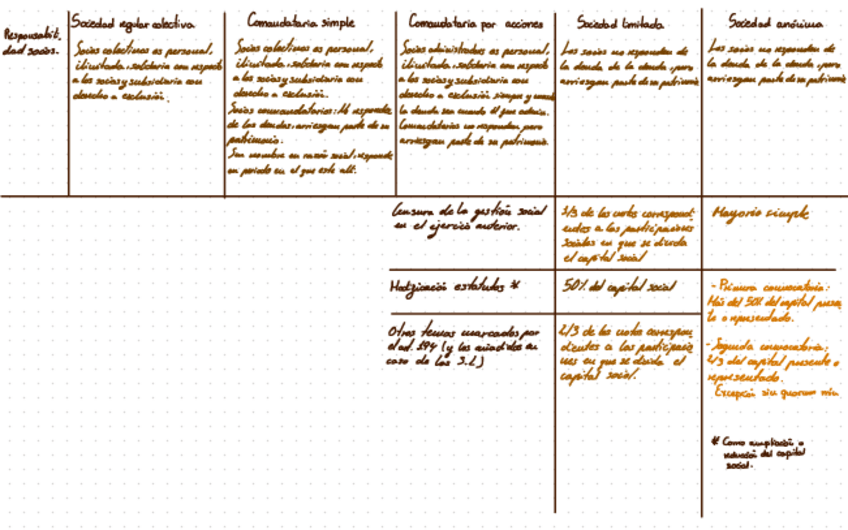 Responsabili-
dad socios.
Sociedad regular colectiva
Socios colectivos es personal,
ilimitada, solidaria con respecto
a los socios y subsidiaria con
derecho a exclusión.
Comanditaria simple
Socios colectivos es personal,
ilimitada, solidaria con respecto
a los socios y subsidiaria con
derecho a exclusión.
Socios comanditarios: No responde
de las deudas, arriesgan parte de su
patrimonio.
Son nombre en razón social, responde
en periodo en el que este allí.
Comanditaria por acciones
Socios administrador es personal,
ilimitada, solidaria con respecto
a los socios y subsidiaria con
derecho a exclusión siempre y cuando
la deuda sea cuando él fue
Comanditarios no responden pero
arriesgan parte de su patrimonio.
Sociedad limitada
Los socios no responden de
la deuda de la deuda, pero
arriesgan parte de su patrimonio
Sociedad anónima
Los socios no responden de
la deuda de la deuda, pero
arriesgan parte de su patrimonio
Censura de la gestión social
en el ejercicio anterior.
1/3 de los votos correspond-
ientes a las participaciones
sociales en que se divida
el capital social
Mayoria simple
Modificación estatutos *
50% del capital social
- Primera convocatoria:
Más del 50% del capital presen
te o representado.
- Segunda convocatoria:
2/3 del capital presente o
representado.
Excepción sin quorum min
Otros temas marcados por
el art. 194 (y los añadidos en
caso de las S.L)
2/3 de los votos correspon
dientes a las participacio
nes en que se divide el
capital social.
* Como ampliación o
reducción del capital
social.